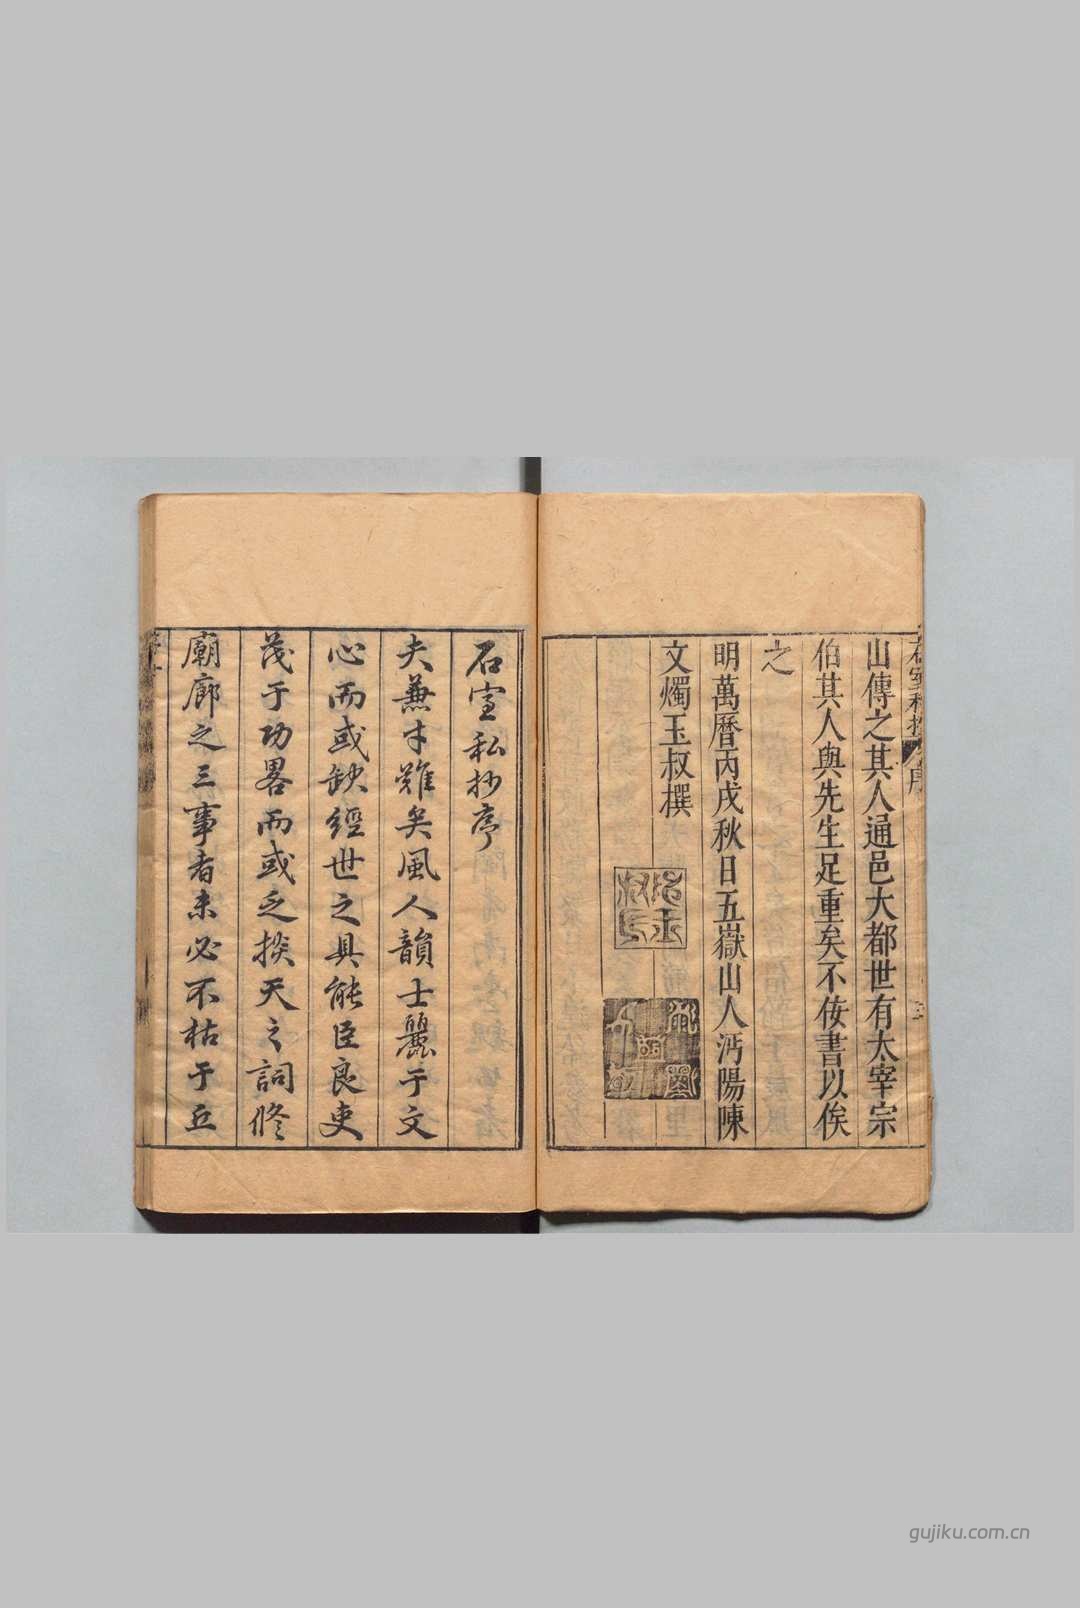 山傳之其人通邑大都世有太宰宗
伯其人與先生足重矣不佞書以俟
之
明萬曆丙戌秋日五嶽山人沔陽陳
文燭玉叔撰
石室私抄序
夫兼才難矣風人韻士麗于文
心而或缺經世之具能臣良吏
茂于功畧而或乏掞天之詞修
廟廊之三事者未必不枯于丘
gujiku.com.cn